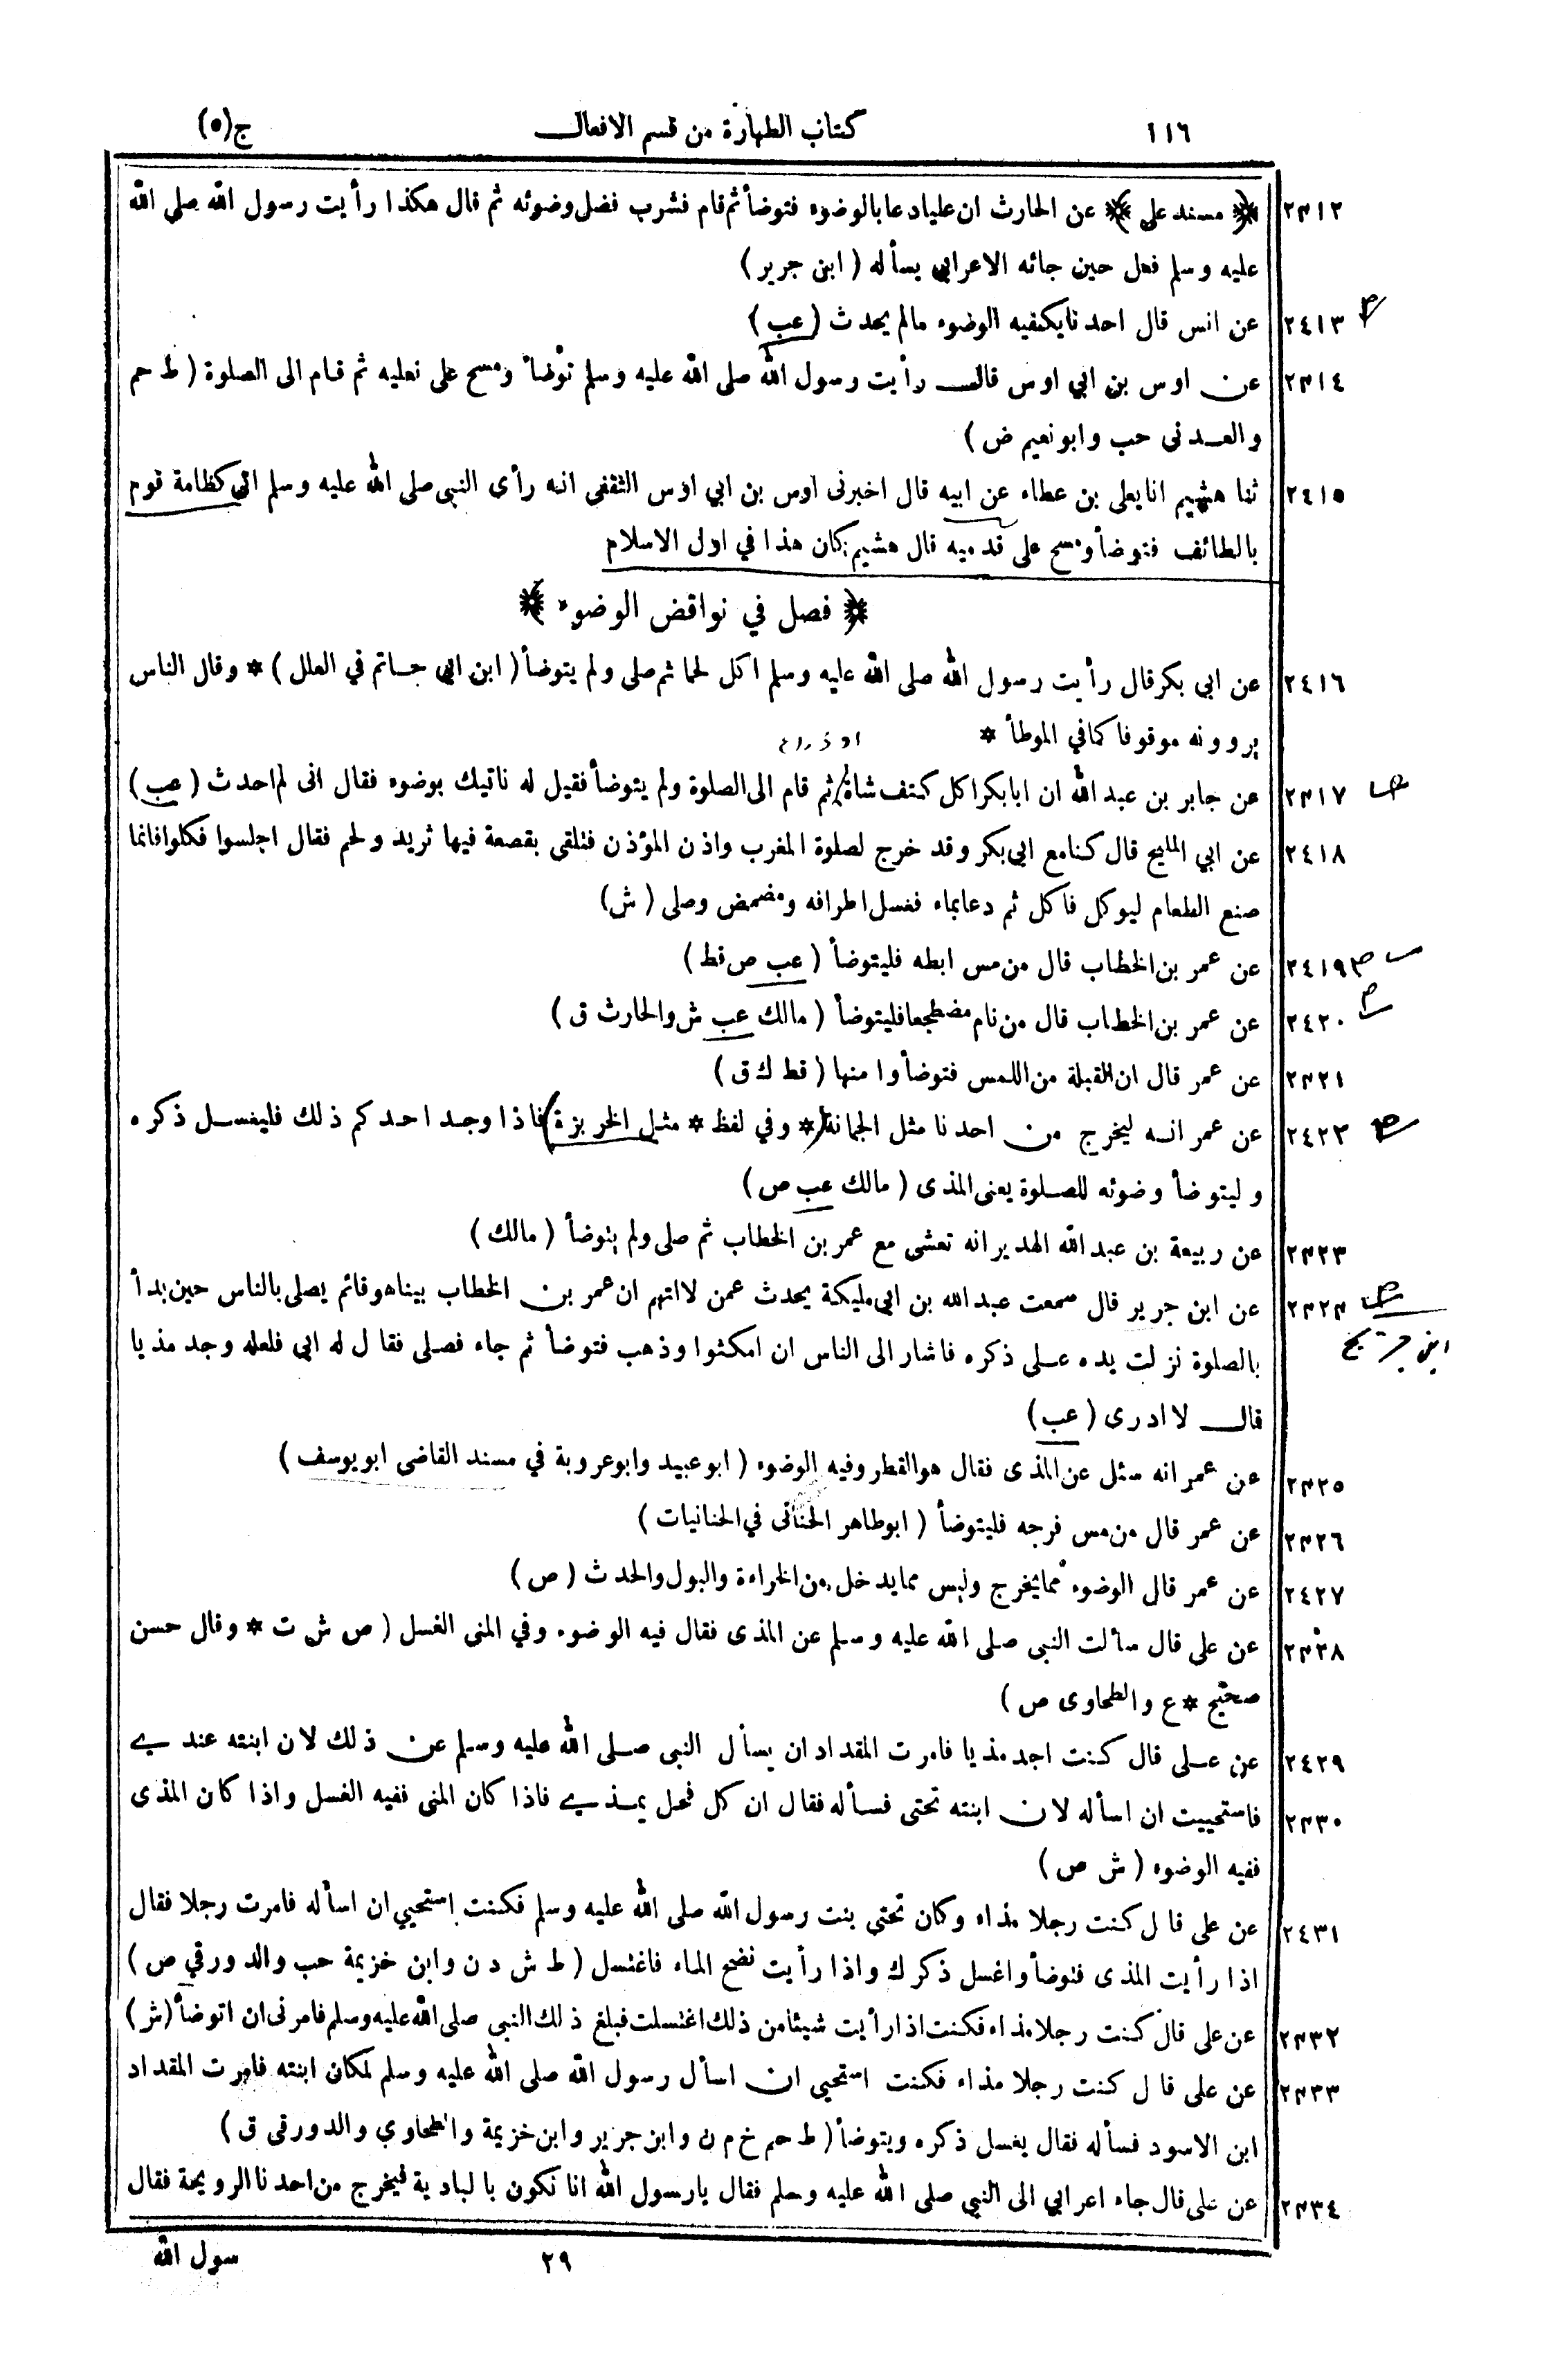 ١١٦
كتاب الطهارة من قسم الافعال
ج(٥)
٢٤١٢ ﴿ مسند على ﴾ عن الحارث ان عليا دعا بالوضوء فتوضأ ثم قام فشرب فضل وضوئه ثم قال هكذا رأيت رسول الله صلى الله
عليه وسلم فعل حين جائه الاعرابي يسأله ( ابن جرير )
٢٤١٣ عن انس قال احدنا يكفيه الوضوء مالم يحدث ( عب )
٢٤١٤ عن اوس بن ابي اوس قال رأيت رسول الله صلى الله عليه وسلم توضأ ومسح على نعليه ثم قام الى الصلوة ( ط حم
والعدنى حب وابونعيم ض )
٢٤١٥ ثنا هشيم انا يعلى بن عطاء عن ابيه قال اخبرنى اوس بن ابي اوس الثقفى انه رأى النبى صلى الله عليه وسلم اتى كظامة قوم
بالطائف فتوضأ ومسح على قدميه قال هشيم كان هذا في اول الاسلام
﴿ فصل في نواقض الوضوء ﴾
٢٤١٦ عن ابي بكر قال رأيت رسول الله صلى الله عليه وسلم اكل لحما ثم صلى ولم يتوضأ ( ابن ابي حاتم في العلل ) * وقال الناس
يروونه موقوفا كما في الموطأ *
٢٤١٧ عن جابر بن عبد الله ان ابابكر اكل كتف شاة ثم قام الى الصلوة ولم يتوضأ فقيل له ناتيك بوضوء فقال انى لم احدث ( عب )
٢٤١٨ عن ابي المليح قال كنا مع ابي بكر وقد خرج لصلوة المغرب واذن المؤذن فتلقى بقصعة فيها ثريد ولحم فقال اجلسوا فكلوا فانما
صنع الطعام ليوكل فاكل ثم دعا بماء فغسل اطرافه ومضمض وصلى ( ش )
٢٤١٩ عن عمر بن الخطاب قال من مس ابطه فليتوضأ ( عب ص قط )
٢٤٢٠ عن عمر بن الخطاب قال من نام مضطجعا فليتوضأ ( مالك عب ش والحارث ق )
٢٤٢١ عن عمر قال ان القبلة من اللمس فتوضأوا منها ( قط ك ق )
٢٤٢٣ عن عمر انه ليخرج من احدنا مثل الجمانة * وفي لفظ * مثل الخريزة فاذا وجد احدكم ذلك فليغسل ذكره
وليتوضأ وضوئه للصلوة يعنى المذى ( مالك عب ص )
٢٤٢٣ عن ربيعة بن عبد الله الهدير انه تعشى مع عمر بن الخطاب ثم صلى ولم يتوضأ ( مالك )
٢٤٢٤ عن ابن جرير قال سمعت عبد الله بن ابي مليكة يحدث عمن لا اتهم ان عمر بن الخطاب بيناهو قائم يصلى بالناس حين بدأ
ابن جريج
بالصلوة نزلت يده على ذكره فاشار الى الناس ان امكثوا وذهب فتوضأ ثم جاء فصلى فقال له ابى فلعله وجد مذيا
قال لا ادرى ( عب )
٢٤٢٥ عن عمر انه سئل عن المذى فقال هو القطر وفيه الوضوء ( ابو عبيد وابوعروبة في مسند القاضى ابويوسف )
٢٤٢٦ عن عمر قال من مس فرجه فليتوضأ ( ابوطاهر الحنائى في الحنائيات )
٢٤٢٧ عن عمر قال الوضوء مما يخرج وليس مما يدخل من الخراءة والبول والحدث ( ص )
٢٤٢٨ عن على قال سألت النبى صلى الله عليه وسلم عن المذى فقال فيه الوضوء وفي المنى الغسل ( ص ش ت * وقال حسن
صحيح * ع والطحاوى ص )
٢٤٢٩ عن على قال كنت اجد مذيا فامرت المقداد ان يسأل النبى صلى الله عليه وسلم عن ذلك لان ابنته عندي
٢٤٣٠ فاستحييت ان اسأله لان ابنته تحتى فسأله فقال ان كل فحل يمذي فاذا كان المنى ففيه الغسل واذا كان المذى
ففيه الوضوء ( ش ص )
٢٤٣١ عن على قال كنت رجلا مذاء وكان تحتى بنت رسول الله صلى الله عليه وسلم فكنت استحيي ان اسأله فامرت رجلا فقال
اذا رأيت المذى فتوضأ واغسل ذكرك واذا رأيت نضح الماء فاغتسل ( ط ش د ن وابن خزيمة حب والدورقي ص )
٢٤٣٢ عن على قال كنت رجلا مذاء فكنت اذا رأيت شيئا من ذلك اغتسلت فبلغ ذلك النبي صلى الله عليه وسلم فامرنى ان اتوضأ ( ش )
٢٤٣٣ عن على قال كنت رجلا مذاء فكنت استحيى ان اسأل رسول الله صلى الله عليه وسلم لمكان ابنته فامرت المقداد
ابن الاسود فسأله فقال يغسل ذكره ويتوضأ ( ط حم خ م ن وابن جرير وابن خزيمة والطحاوي والدورقى ق )
٢٤٣٤ عن على قال جاء اعرابي الى النبي صلى الله عليه وسلم فقال يارسول الله انا نكون بالبادية فيخرج من احدنا الرويحة فقال
٢٩
سول الله